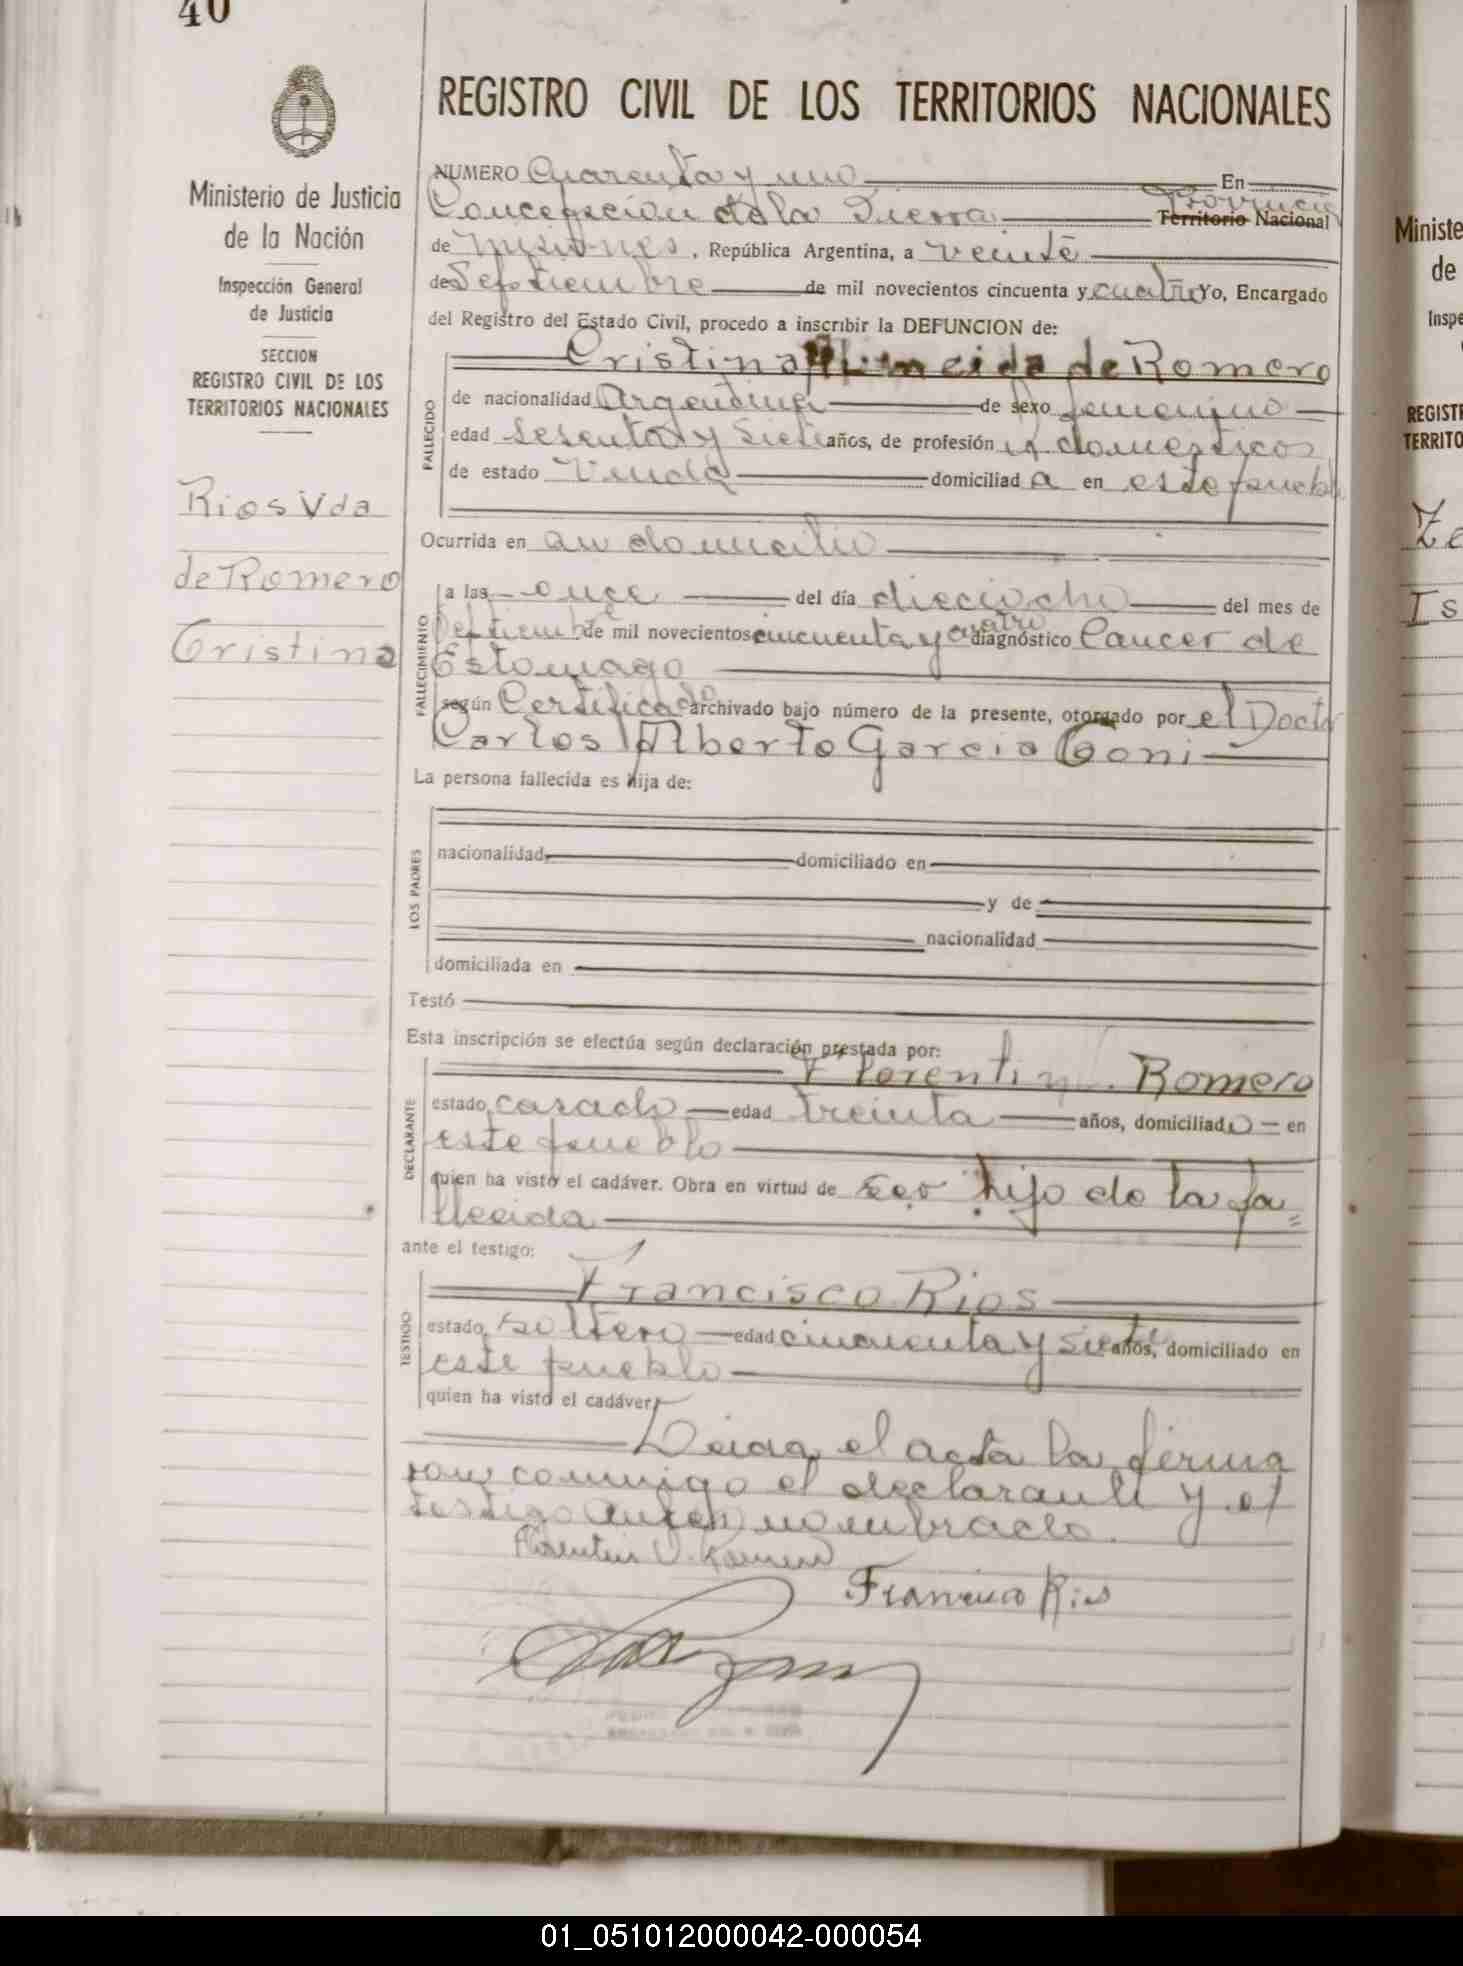 40
REGISTRO CIVIL DE LOS TERRITORIOS NACIONALES
Ministerio de Justicia
de la Nación
Inspección General
de Justicia
SECCION
REGISTRO CIVIL DE LOS
TERRITORIOS NACIONALES
Rios Vda
de Romero
Cristina
NUMERO Cuarenta y uno En
Concepcion de la Sierra Provincia Territorio Nacional
de Misiones, República Argentina, a veinte
de Septiembre de mil novecientos cincuenta y cuatro Yo, Encargado
del Registro del Estado Civil, procedo a inscribir la DEFUNCION de:
FALLECIDO
Cristina Almeida de Romero
de nacionalidad Argentina de sexo femenino
edad sesenta y siete años, de profesión q. domesticos
de estado Viuda domiciliad a en este pueblo
Ocurrida en su domicilio
FALLECIMIENTO
a las once del día dieciocho del mes de
Septiembre de mil novecientos cincuenta y cuatro diagnóstico Cancer de
Estomago
según Certificado archivado bajo número de la presente, otorgado por el Doctor
Carlos Alberto Garcia Goni
La persona fallecida es hija de:
LOS PADRES
nacionalidad domiciliado en
y de
nacionalidad
domiciliada en
Testó
Esta inscripción se efectúa según declaración prestada por:
DECLARANTE
Florentin V. Romero
estado casado edad treinta años, domiciliado en
este pueblo
quien ha visto el cadáver. Obra en virtud de ser hijo de la fa=
llecida
ante el testigo:
TESTIGO
Francisco Rios
estado soltero edad cincuenta y siete años, domiciliado en
este pueblo
quien ha visto el cadáver
Leida el acta la firma
ron conmigo el declarante y el
testigo antes nombrado.
Florentin V. Romero
Francisco Rios
Ministe
de
Inspe
REGISTR
TERRITO
Ze
Is
01_051012000042-000054